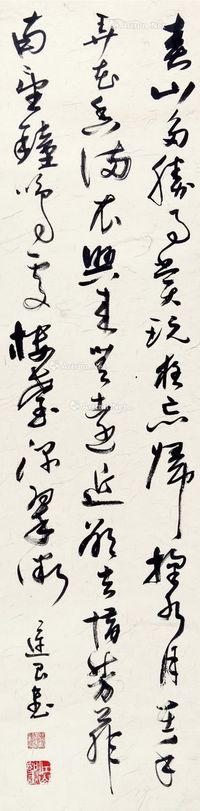 春山多胜事赏玩夜忘归掬水月在手
弄花香满衣兴来无远近欲去惜芳菲
南望钟鸣处楼台深翠微